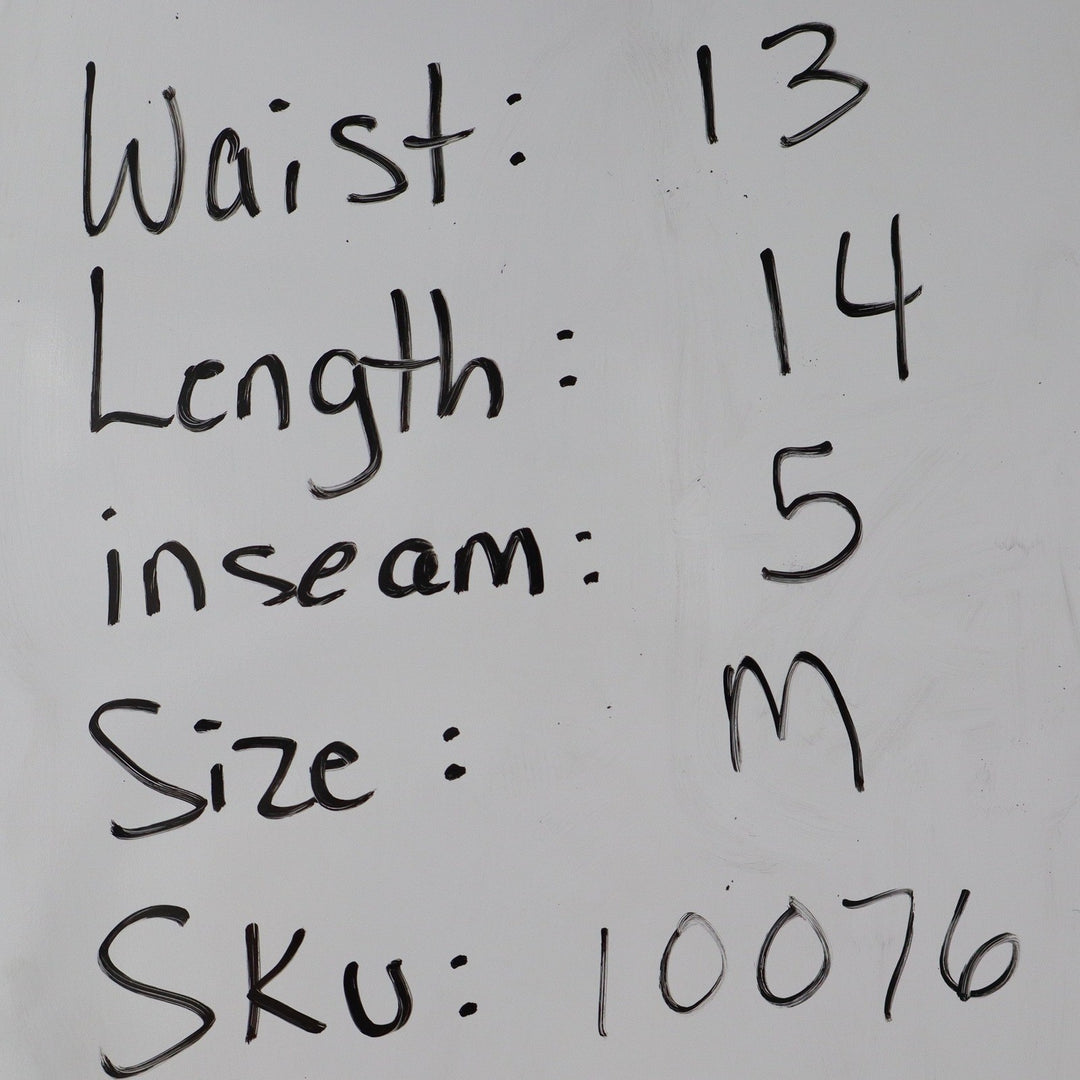 Waist: 13
Length: 14
inseam: 5
Size: M
SKU: 10076